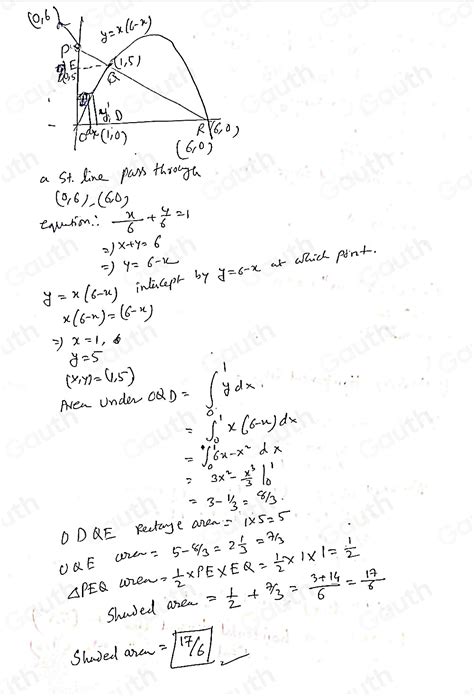 (0,6)
y=x(6-x)
P
E
(1,5)
Q
y
D
O dx (1,0)
R (6,0)
(6,0)
a St. line pass through
(0,6), (6,0)
equation: x/6 + y/6 = 1
=> x+y=6
=> y=6-x
y = x(6-x) intercept by y=6-x at which point.
x(6-x) = (6-x)
=> x=1, 6
y=5
(x,y)=(1,5)
Area under OQD = ∫₀¹ y dx.
= ∫₀¹ x(6-x)dx
= ∫₀¹ 6x-x² dx
= 3x² - x³/3 |₀¹
= 3-1/3 = 8/3.
ODQE rectange area = 1x5=5
OQE area = 5-8/3 = 2 1/3 = 7/3
△PEQ area = 1/2 x PE x EQ = 1/2 x 1 x 1 = 1/2
Shaded area = 1/2 + 7/3 = 3+14/6 = 17/6
Shaded area = 17/6